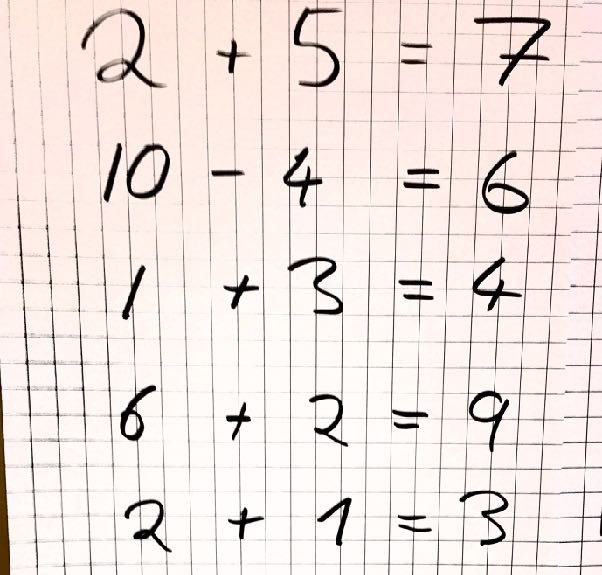 2 + 5 = 7
10 - 4 = 6
1 + 3 = 4
6 + 2 = 9
2 + 1 = 3